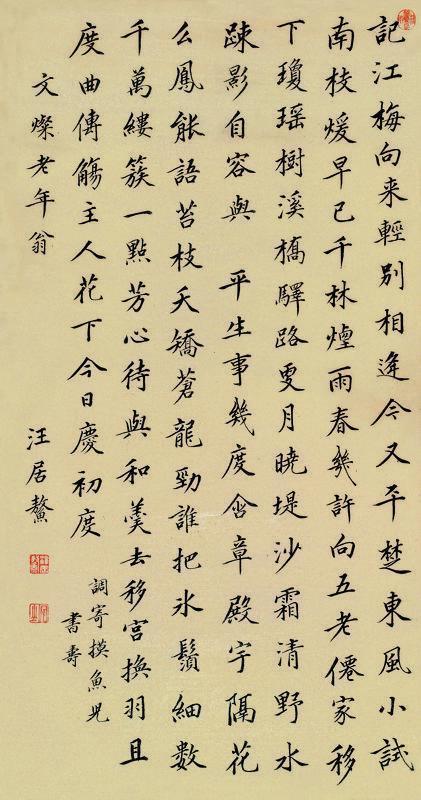 記江梅向来輕別相逢今又平楚東風小試
南枝煖早已千林煙雨春幾許向五老僊家移
下瓊瑶樹溪橋驛路更月曉堤沙霜清野水
踈影自容與　平生事幾度含章殿宇隔花
么鳳能語苔枝夭矯蒼龍勁誰把氷鬚細數
千萬縷簇一點芳心待與和羹去移宫換羽且
度曲傳觴主人花下今日慶初度
調寄摸魚兒
書壽
文燦老年翁
汪居鰲